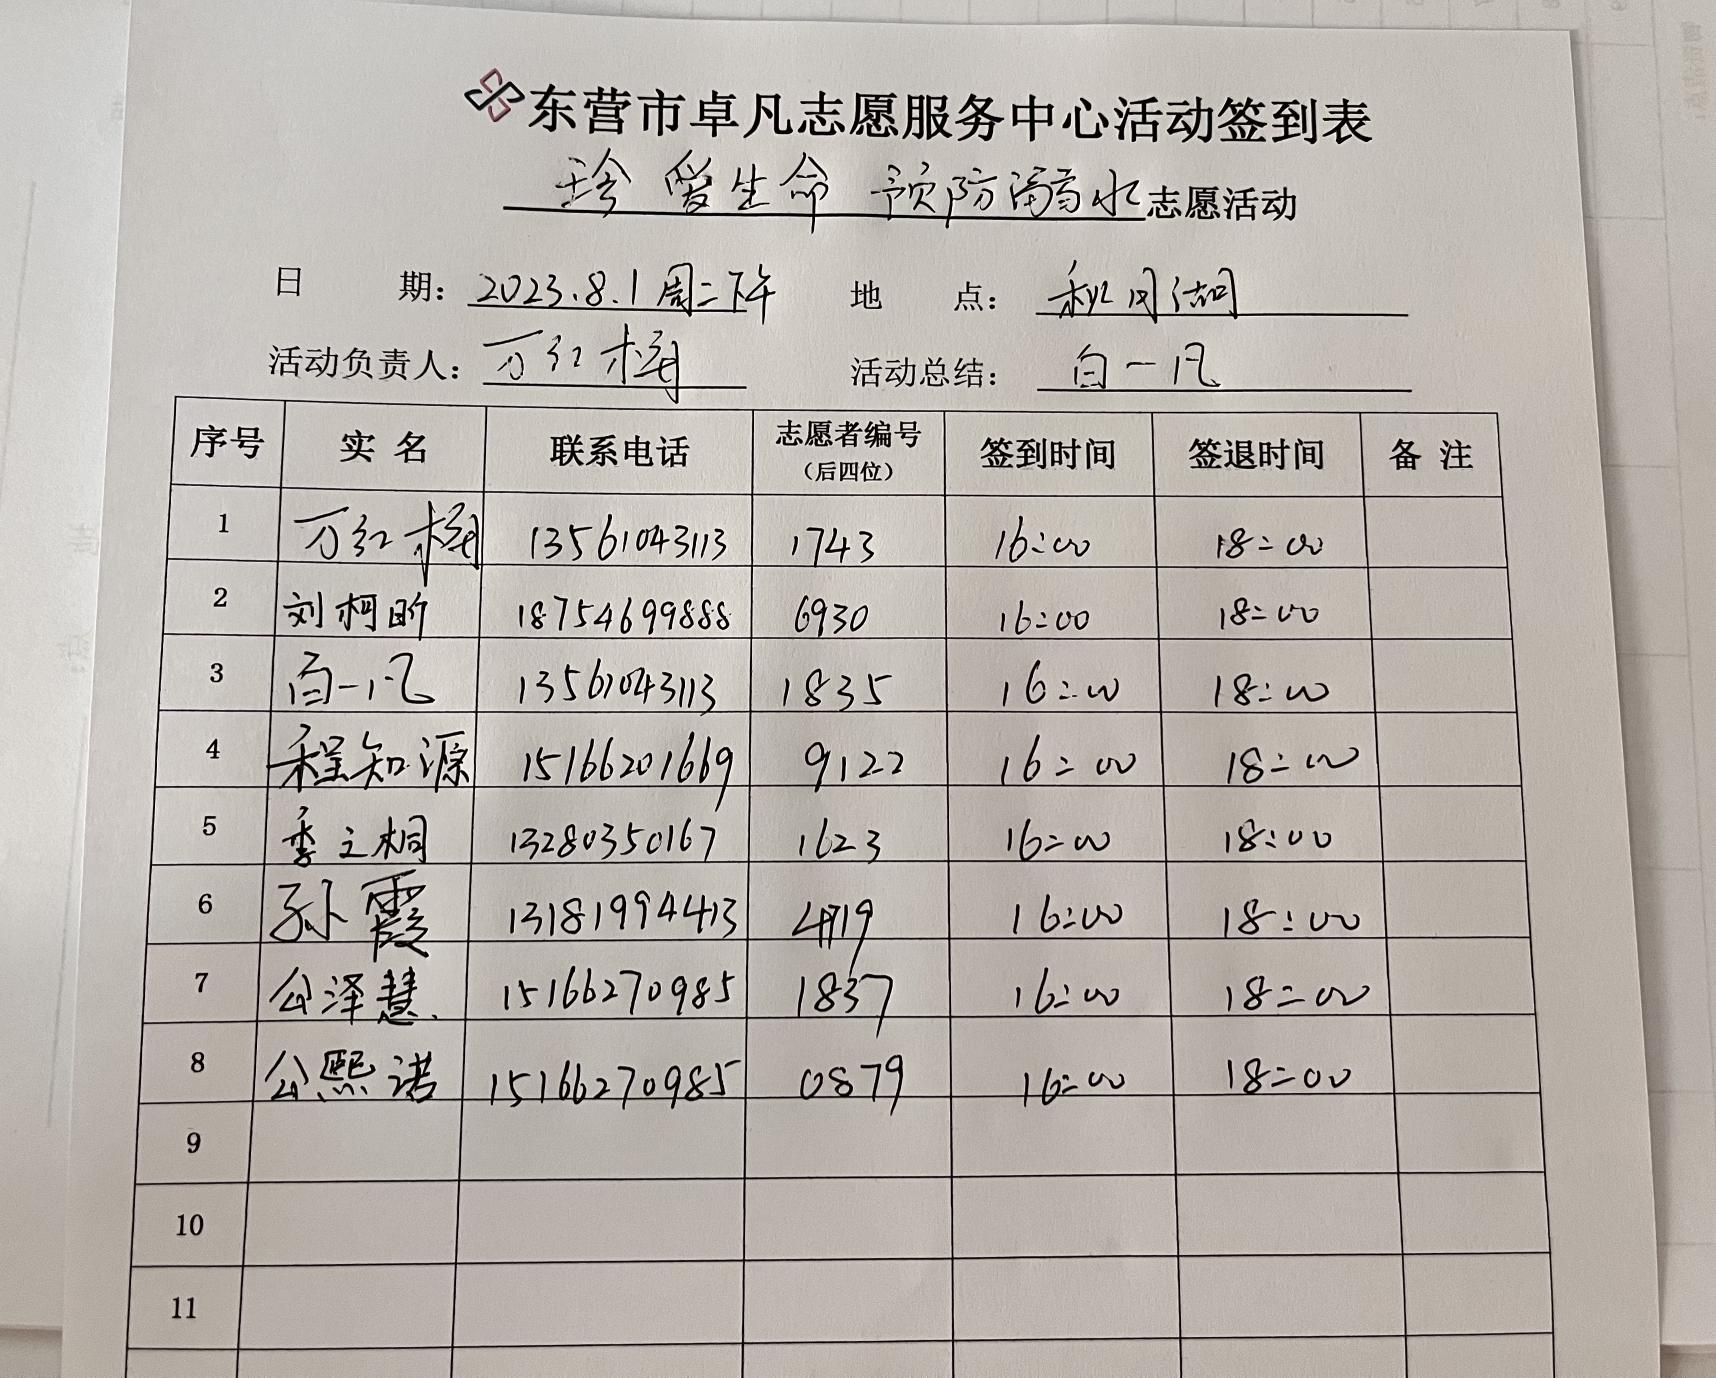 东营市卓凡志愿服务中心活动签到表
珍爱生命 预防溺水志愿活动
日 期：2023.8.1周二下午 地 点：秋月湖
活动负责人：万红梅 活动总结：白一凡
序号 实名 联系电话 志愿者编号（后四位） 签到时间 签退时间 备注
1 万红梅 13561043113 1743 16:00 18:00
2 刘柯昕 18754699888 6930 16:00 18:00
3 白一凡 13561043113 1835 16:00 18:00
4 程知源 15166201669 9122 16:00 18:00
5 季之桐 13280350167 1623 16:00 18:00
6 孙霞 13181994413 16:00 18:00
7 公泽慧 15166270985 1837 16:00 18:00
8 公熙诺 15166270985 0879 16:00 18:00
9
10
11